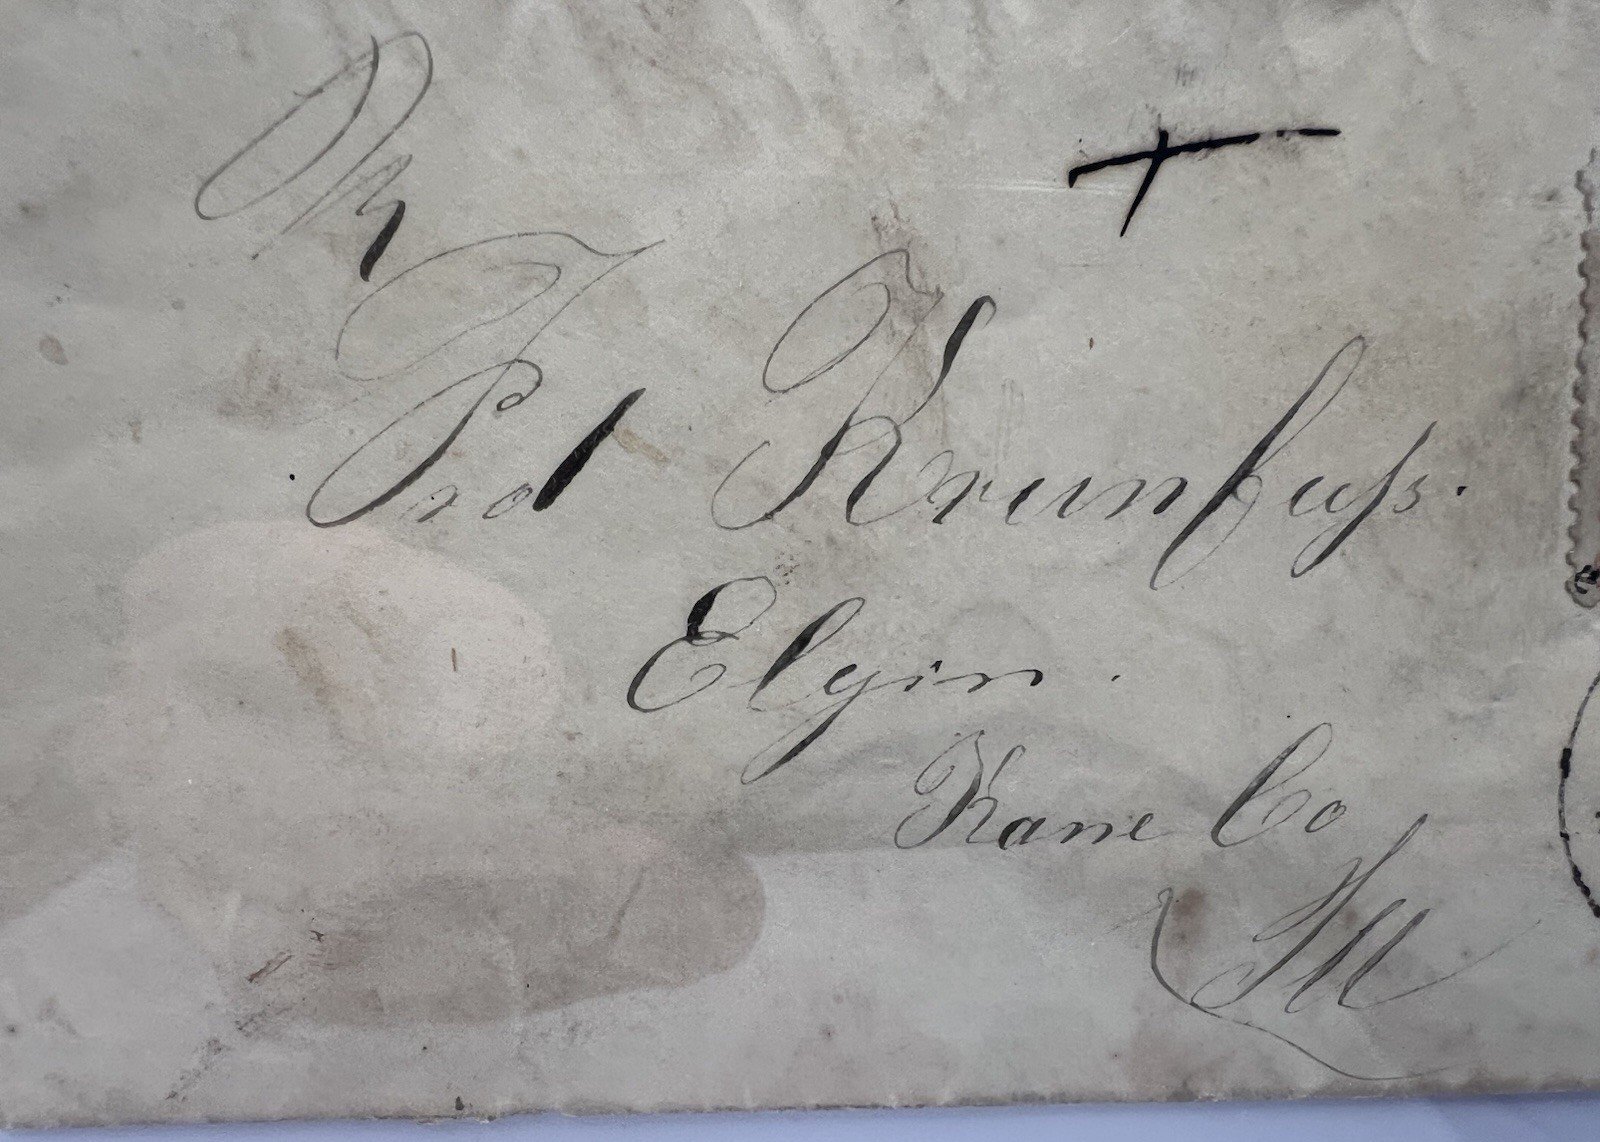 Mr
Fred Krumfuss.
Elgin.
Kane Co
Ill